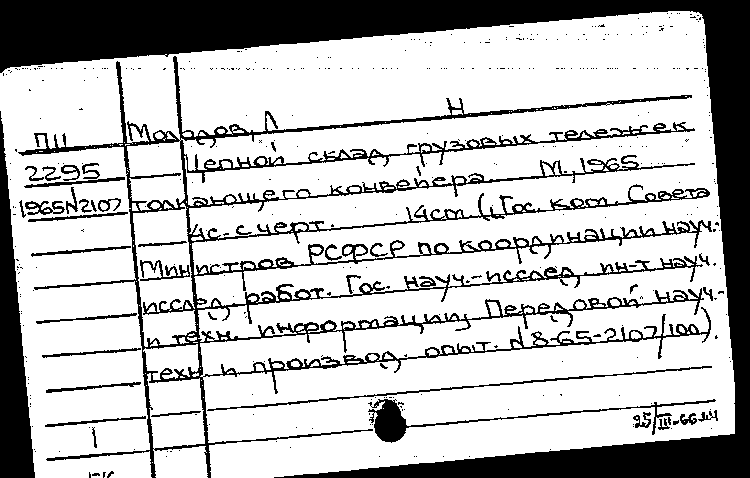 Н
П11 Молодов, Л
2295 Цепной склад грузовых тележек
1965N2107 толкающего конвейера. М., 1965
4с. с черт. 14см (Гос. ком. Совета
Министров РСФСР по координации науч.-
исслед. работ. Гос. науч.-исслед. ин-т науч.
и техн. информации, Передовой науч.-
техн. и производ. опыт. N 8-65-2107/100).
1
25/III-66